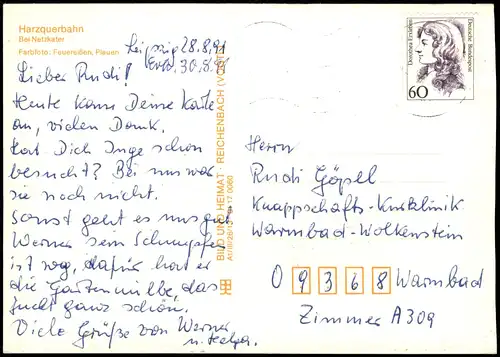 Harzquerbahn
Bei Netzkater
Farbfoto: Feuereißen, Plauen
Leipzig 28.8.91
30.8.
Lieber Rudi!
Heute kam Deine Karte
an, vielen Dank.
Hat Dich Inge schon
besucht? Bei uns war
sie noch nicht.
Sonst geht es uns gut.
Werner sein Schnupfen
ist weg, dafür hat er
die Gartenmilbe, das
juckt ganz schön.
Viele Grüße von Werner
u. Helga.
BILD UND HEIMAT · REICHENBACH (VOGTL)
Dorothea Erxleben
Deutsche Bundespost
60
Herrn
Rudi Göpel
Knappschafts-Kurklinik
Warmbad-Wolkenstein
O 9368 Warmbad
Zimmer A309